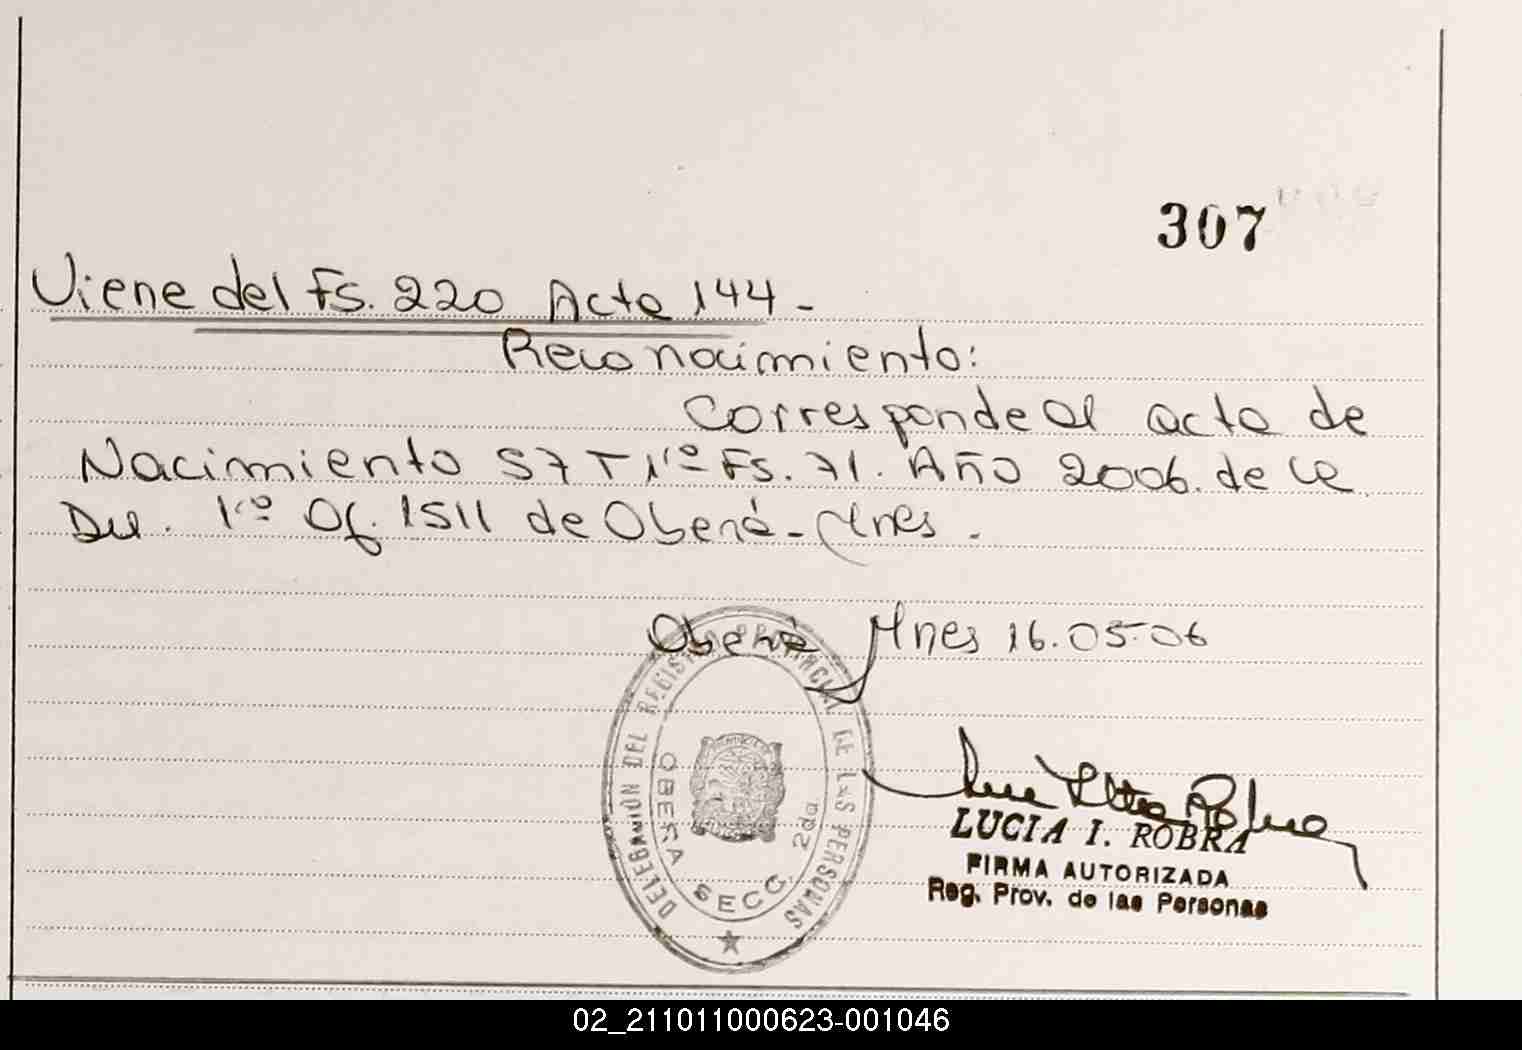 307
Viene del Fs. 220 Acta 144-
Reconocimiento:
Corresponde al acta de
Nacimiento 57 T 1º Fs. 71. Año 2006. de la
1º Of. 1511 de Oberá - Mnes.
Oberá Mnes 16.05-06
DELEGACIÓN DEL REGISTRO PROVINCIAL DE LAS PERSONAS
OBERA SECC. 2da
LUCIA I. ROBRA
FIRMA AUTORIZADA
Reg. Prov. de las Personas
02_211011000623-001046